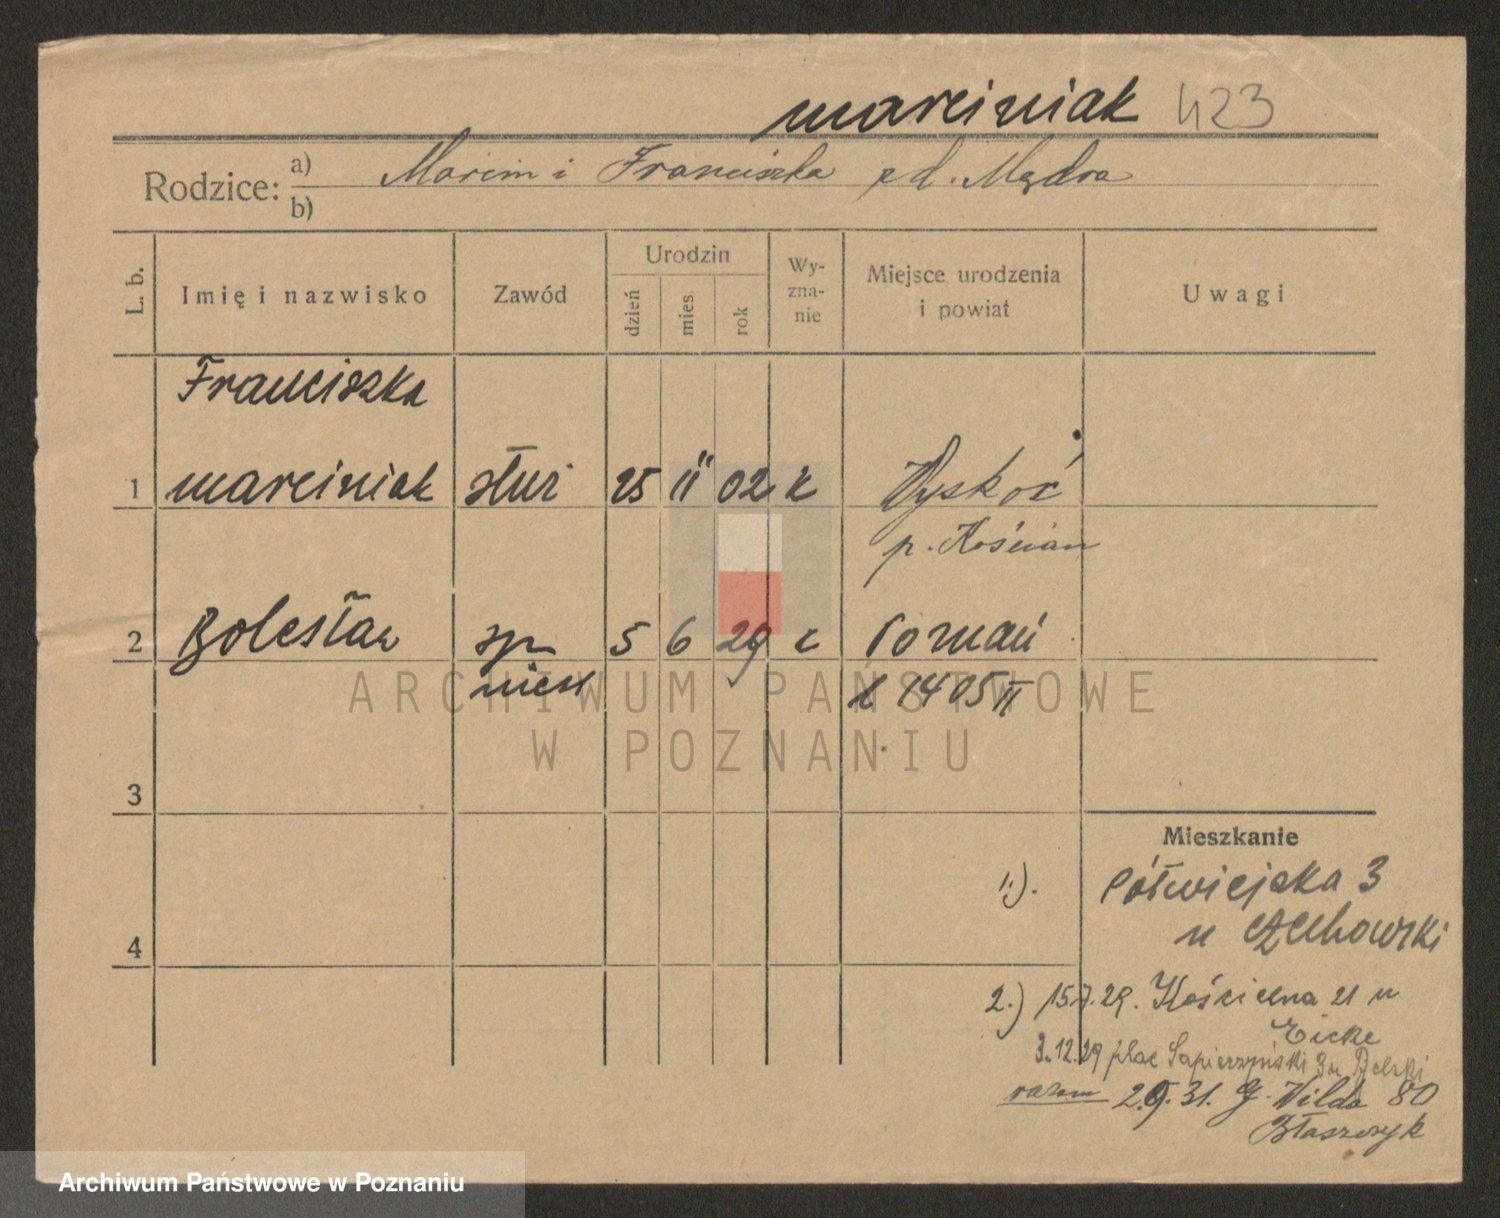 Marciniak 423
Rodzice: a) Marcin i Franciszka zd. Mądra
b)
L. b. Imię i nazwisko Zawód Urodzin dzień mies. rok Wy-zna-nie Miejsce urodzenia i powiat Uwagi
Franciszka
1 Marciniak służ 25 II 02 k Wyskoć
p. Kościan
2 Bolesław 5 6 29 k Poznań
1405 II
3
Mieszkanie
1.). Półwiejska 3
4
u Czuhowski
2.) 15.7.29. Kościelna 21 u
Eicke
3.12.29 plac Sapierzyński 3 u Belski
razem 31. G. Wilda 80
Błaszczyk
ARCHIWUM PAŃSTWOWE
W POZNANIU
Archiwum Państwowe w Poznaniu